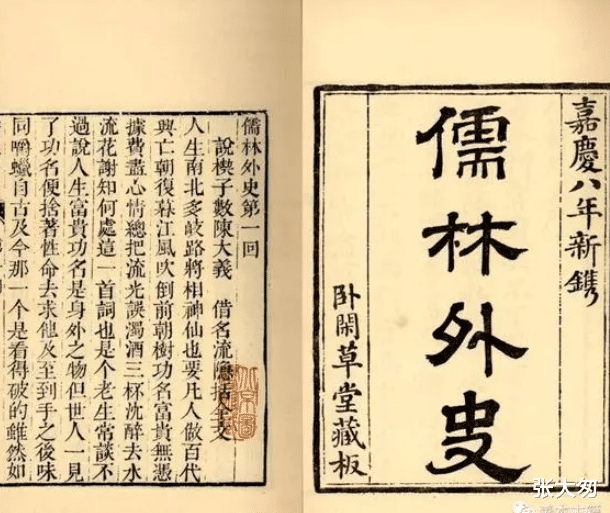 嘉慶八年新鐫
儒林外史
卧閑草堂藏板
儒林外史第一回
說楔子敷陳大義 借名流隱括全文
人生南北多岐路將相神仙也要凡人做百代
興亡朝復暮江風吹倒前朝樹功名富貴無憑
據費盡心情總把流光誤濁酒三杯沈醉去水
流花謝知何處這一首詞也是个老生常談不
過說人生富貴功名是身外之物但世人一見
了功名便捨著性命去求他及至到手之後味
同嚼蠟自古及今那一个是看得破的雖然如
张大匆